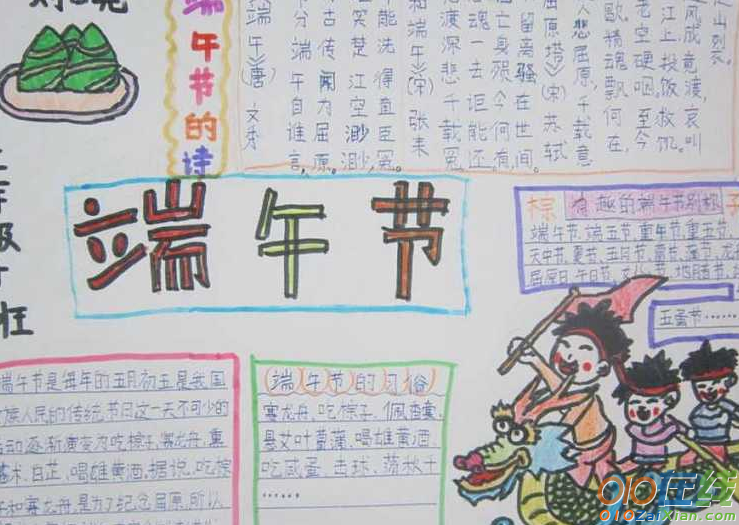 端午节的诗
端午》(唐) 文秀
节分端午自谁言,
古传闻为屈原。
笑楚江空渺渺,
能洗得直臣冤。
和端午》(宋) 张耒
渡深悲千载冤,
魂一去讵能还。
亡身殒今何有,
留离骚在世间。
屈原塔》(宋) 苏轼
人悲屈原,千载意
歌,精魂飘何在,
老空硬咽。至今
江上,投饭救饥。
风成竞渡,哀叫
山裂。
端午节
粽 有趣的端午节别称 子
端午节、端五节、重午节、重五节、
天中节、夏节、五月节、
屈原日、午日节、
五蛋节……
端午节是每年的五月初五是我国
族人民的传统节日这一天不可少的
活动逐渐演变为吃粽子,赛龙舟,熏
术、白芷,喝雄黄酒。据说,吃粽
子和赛龙舟,是为了纪念屈原,所以
端午节的习俗
赛龙舟,吃粽子,佩香囊,
悬艾叶菖蒲,喝雄黄酒,
吃咸蛋,击球,荡秋千
……
010在线
010ZaiXian.com